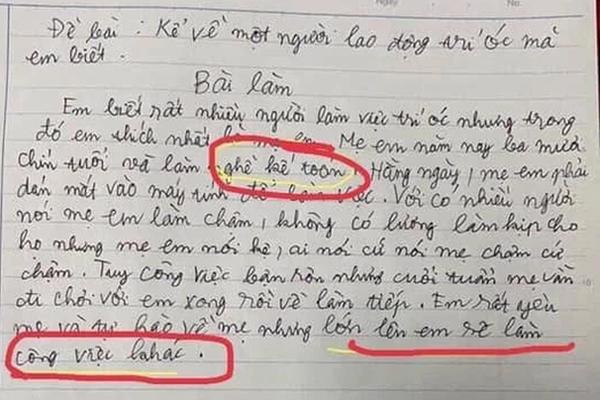 Ngày No.
Đề bài : Kể về một người lao động trí óc mà
em biết.
Bài làm
Em biết rất nhiều người làm việc trí óc nhưng trong
đó em thích nhất là mẹ em. Mẹ em năm nay ba mươi
chín tuổi và làm nghề kế toán, Hằng ngày, mẹ em phải
dán mắt vào máy tính để làm việc. Với có nhiều người
nói mẹ em làm chậm, không có lương làm kịp cho
họ nhưng mẹ em nói kệ, ai nói cứ nói mẹ chậm cứ
chậm. Tuy công việc bận rộn nhưng cuối tuần mẹ vẫn
đi chơi với em xong rồi về làm tiếp. Em rất yêu
mẹ và tự hào về mẹ nhưng lớn lên em sẽ làm
công việc khác.